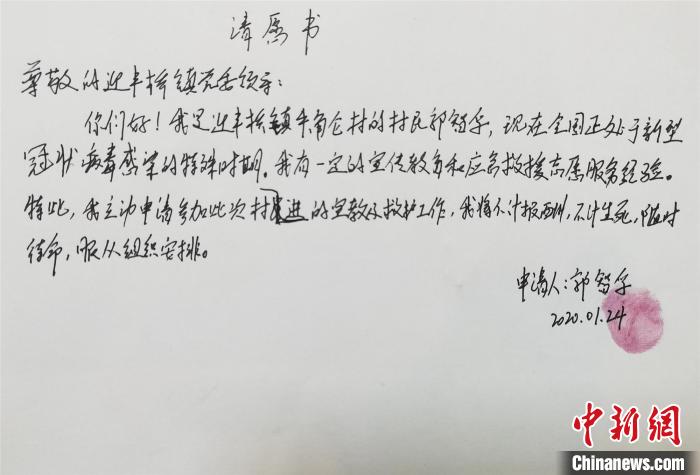 请愿书
尊敬的迎丰桥镇党委领导：
你们好！我是迎丰桥镇牛角仑村的村民郭智存，现在全国正处于新型
冠状病毒感染的特殊时期。我有一定的宣传教育和应急救援志愿服务经验。
特此，我主动申请参加此次村里进的宣教及救护工作，我将不计报酬，不计生死，随时
待命，服从组织安排。
申请人：郭智
2020.01.24
中新网
Chinanews.com